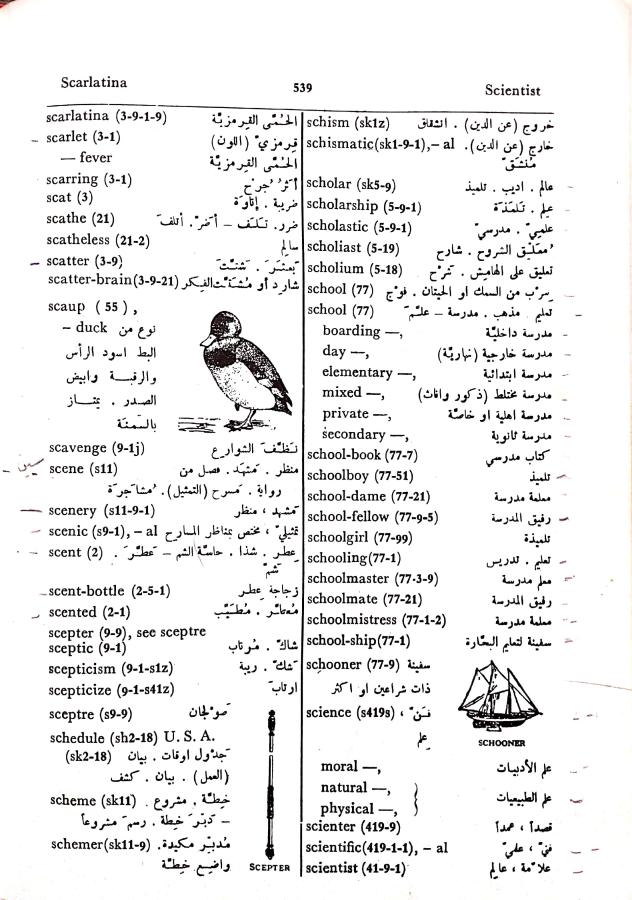 Scarlatina
539
Scientist
scarlatina (3-9-1-9) الحُمَّى القِرمزيَّة
scarlet (3-1) قِرمزيّ (اللون)
— fever الحُمَّى القِرمزيَّة
scarring (3-1) أثَرُ جُرح
scat (3) ضريبة . إتاوَة
scathe (21) ضرر. تَلَف – أضرّ. أتلفَ
scatheless (21-2) سالِم
scatter (3-9) بَعثَرَ . شَتَّتَ
scatter-brain(3-9-21) شارد أو مُشتَّت الفِكر
scaup (55),
– duck نوع من
البط اسود الرأس
والرقبة وابيض
الصدر . يمتاز
بالسمنة
scavenge (9-1j) نَظَّفَ الشوارع
scene (s11) منظر . مَشهَد . فصل من
رواية . مَسرح (التمثيل). مُشاجَرة
scenery (s11-9-1) مَشهد ، منظر
scenic (s9-1), – al تمثيليّ ، مختص بمناظر المسارح
scent (2) عِطر . شذا . حاسَّة الشم – عَطَّرَ .
شمّ
scent-bottle (2-5-1) زجاجة عِطر
scented (2-1) مُعطَّر . مُطَيَّب
scepter (9-9), see sceptre
sceptic (9-1) شاكّ . مُرتاب
scepticism (9-1-s1z) شكّ . ريبة
scepticize (9-1-s41z) ارتابَ
sceptre (s9-9) صَولجان
schedule (sh2-18) U. S. A.
(sk2-18) جَدوَل اوقات . بيان
(العمل) . بيان . كشف
scheme (sk11) خِطَّة . مشروع .
– دَبَّرَ خِطة . رسمَ مشروعاً
schemer(sk11-9) مُدبِّر مَكيدة.
واضِع خِطَّة
SCEPTER
schism (sk1z) خروج (عن الدين) . انشقاق
schismatic(sk1-9-1),– al خارج (عن الدين).
مُنشَقّ
scholar (sk5-9) عالم . اديب . تلميذ
scholarship (5-9-1) عِلم . تَلمَذَة
scholastic (5-9-1) علميّ . مدرسيّ
scholiast (5-19) مُعلِّق الشروح . شارح
scholium (5-18) تعليق على الهامِش . شَرح
school (77) سِرب من السمك او الحيتان . فوج
school (77) تعليم . مذهب . مدرسة – علَّمَ
boarding —, مدرسة داخليَّة
day —, مدرسة خارجية (نهاريَّة)
elementary —, مدرسة ابتدائية
mixed —, مدرسة مختلط (ذكور واناث)
private —, مدرسة اهلية او خاصَّة
secondary —, مدرسة ثانوية
school-book (77-7) كتاب مدرسي
schoolboy (77-51) تلميذ
school-dame (77-21) معلمة مدرسة
school-fellow (77-9-5) رفيق المدرسة
schoolgirl (77-99) تلميذة
schooling(77-1) تعليم . تدريس
schoolmaster (77-3-9) معلم مدرسة
schoolmate (77-21) رفيق المدرسة
schoolmistress (77-1-2) معلمة مدرسة
school-ship(77-1) سفينة لتعليم البحَّارة
schooner (77-9) سفينة
ذات شراعين او اكثر
SCHOONER
science (s419s) فَنّ ،
عِلم
moral —, علم الأدبيات
natural —,
physical —, علم الطبيعيات
scienter (419-9) قصداً ، عمداً
scientific(419-1-1), – al فنيّ ، علميّ
scientist (41-9-1) علاّمة ، عالِم